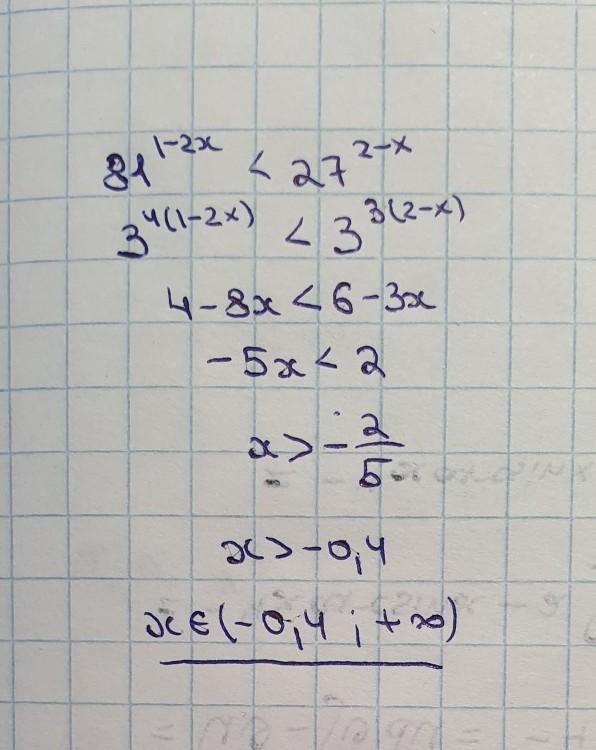 81^(1-2x) < 27^(2-x)
3^(4(1-2x)) < 3^(3(2-x))
4-8x < 6-3x
-5x < 2
x > -2/5
x > -0,4
x ∈ (-0,4 ; +∞)